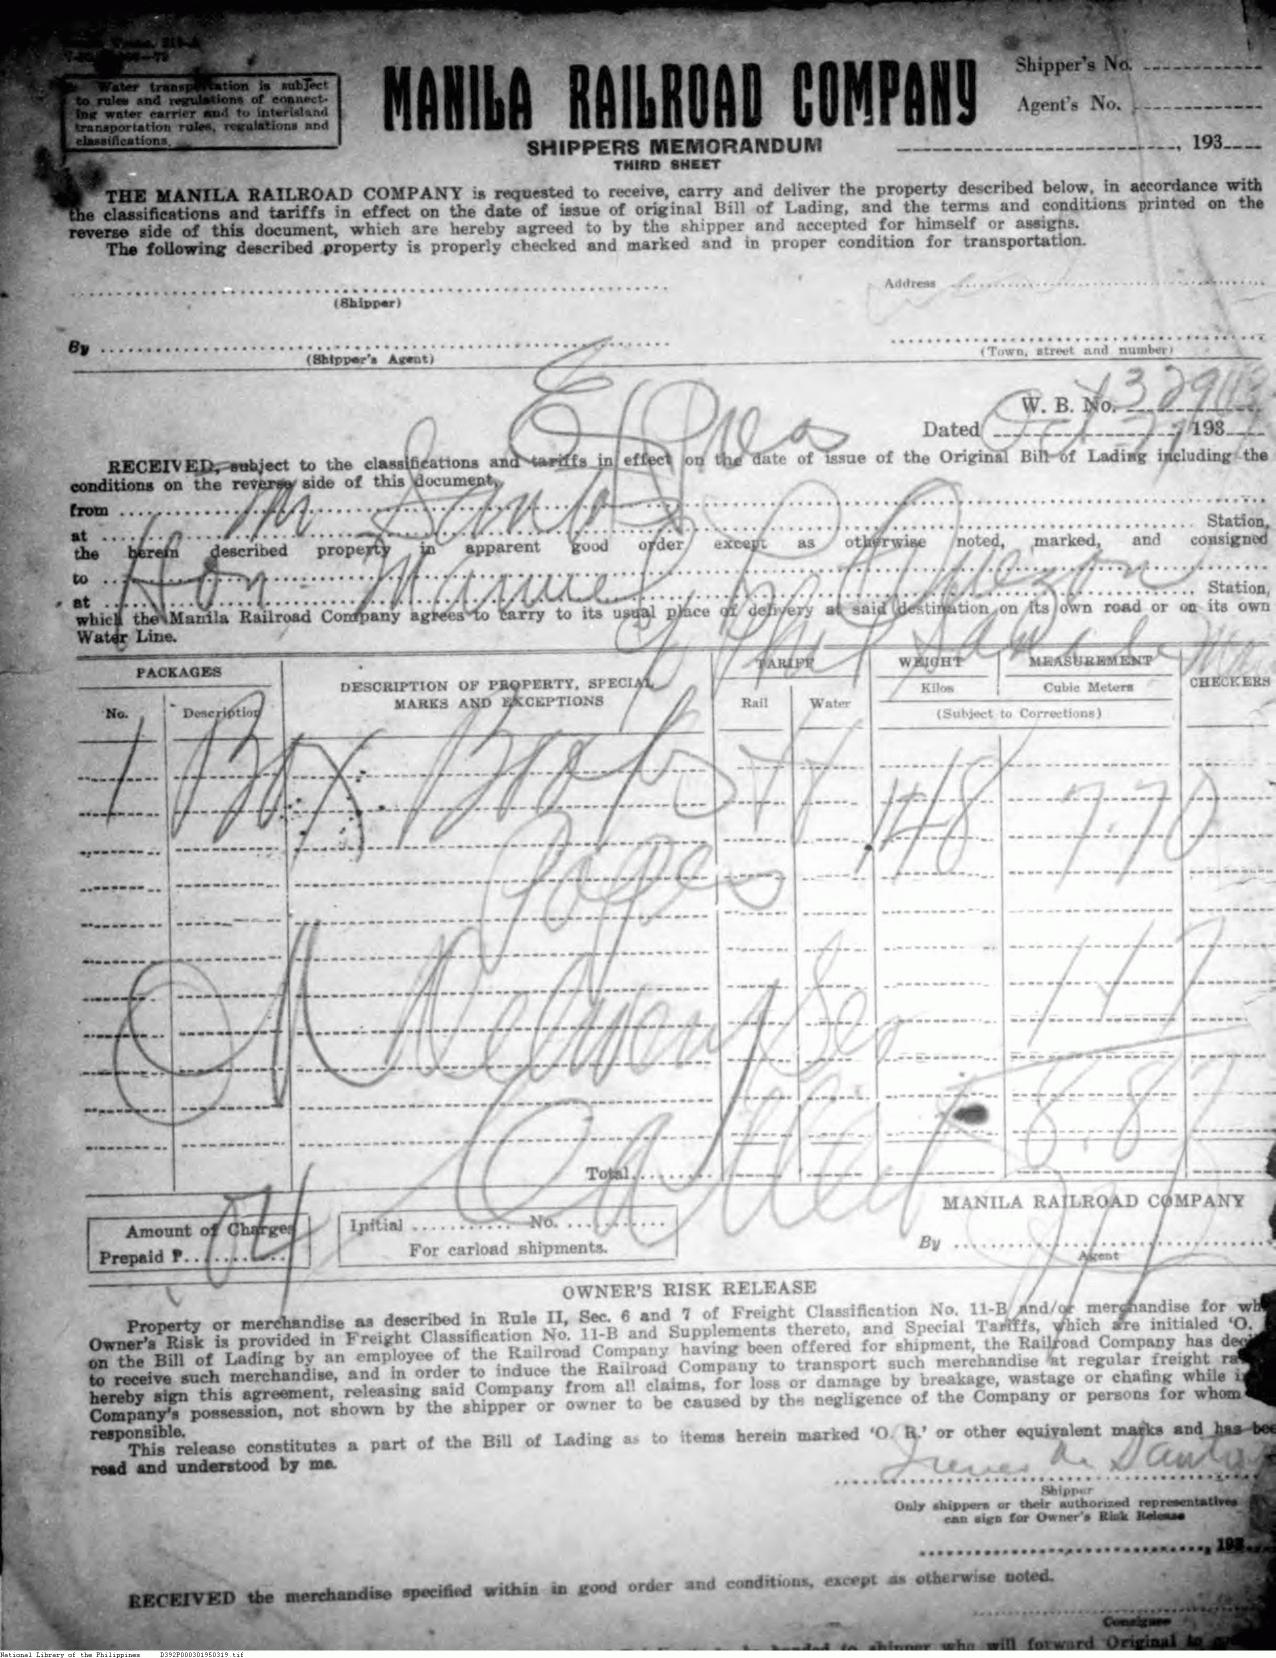 Water transportation is subject
to rules and regulations of connect-
ing water carrier and to interisland
transportation rules, regulations and
classifications.
MANILA RAILROAD COMPANY
SHIPPERS MEMORANDUM
THIRD SHEET
Shipper's No.
Agent's No.
, 193
THE MANILA RAILROAD COMPANY is requested to receive, carry and deliver the property described below, in accordance with
the classifications and tariffs in effect on the date of issue of original Bill of Lading, and the terms and conditions printed on the
reverse side of this document, which are hereby agreed to by the shipper and accepted for himself or assigns.
The following described property is properly checked and marked and in proper condition for transportation.
Address
(Shipper)
By
(Shipper's Agent)
(Town, street and number)
W. B. No.
Dated Oct 193
RECEIVED, subject to the classifications and tariffs in effect on the date of issue of the Original Bill of Lading including the
conditions on the reverse side of this document,
from M Santos
at Station,
the herein described property in apparent good order except as otherwise noted, marked, and consigned
to Hon. Manuel Quezon
at Station,
which the Manila Railroad Company agrees to carry to its usual place of delivery at said destination on its own road or on its own
Water Line.
PACKAGES
DESCRIPTION OF PROPERTY, SPECIAL
MARKS AND EXCEPTIONS
TARIFF
WEIGHT
MEASUREMENT
CHECKERS
No.
Description
Rail
Water
Kilos
Cubic Meters
(Subject to Corrections)
1 Box 148 7.70
1.17
8.87
Total
Amount of Charges
Prepaid P
Initial No.
For carload shipments.
MANILA RAILROAD COMPANY
By
Agent
OWNER'S RISK RELEASE
Property or merchandise as described in Rule II, Sec. 6 and 7 of Freight Classification No. 11-B and/or merchandise for wh
Owner's Risk is provided in Freight Classification No. 11-B and Supplements thereto, and Special Tariffs, which are initialed 'O.
on the Bill of Lading by an employee of the Railroad Company having been offered for shipment, the Railroad Company has deci
to receive such merchandise, and in order to induce the Railroad Company to transport such merchandise at regular freight ra
hereby sign this agreement, releasing said Company from all claims, for loss or damage by breakage, wastage or chafing while i
Company's possession, not shown by the shipper or owner to be caused by the negligence of the Company or persons for whom
responsible.
This release constitutes a part of the Bill of Lading as to items herein marked 'O. R.' or other equivalent marks and has bee
read and understood by me.
Shipper
Only shippers or their authorized representatives
can sign for Owner's Risk Release
, 193
RECEIVED the merchandise specified within in good order and conditions, except as otherwise noted.
Consignee
to shipper who will forward Original to
National Library of the Philippines D392P000301950319.tif